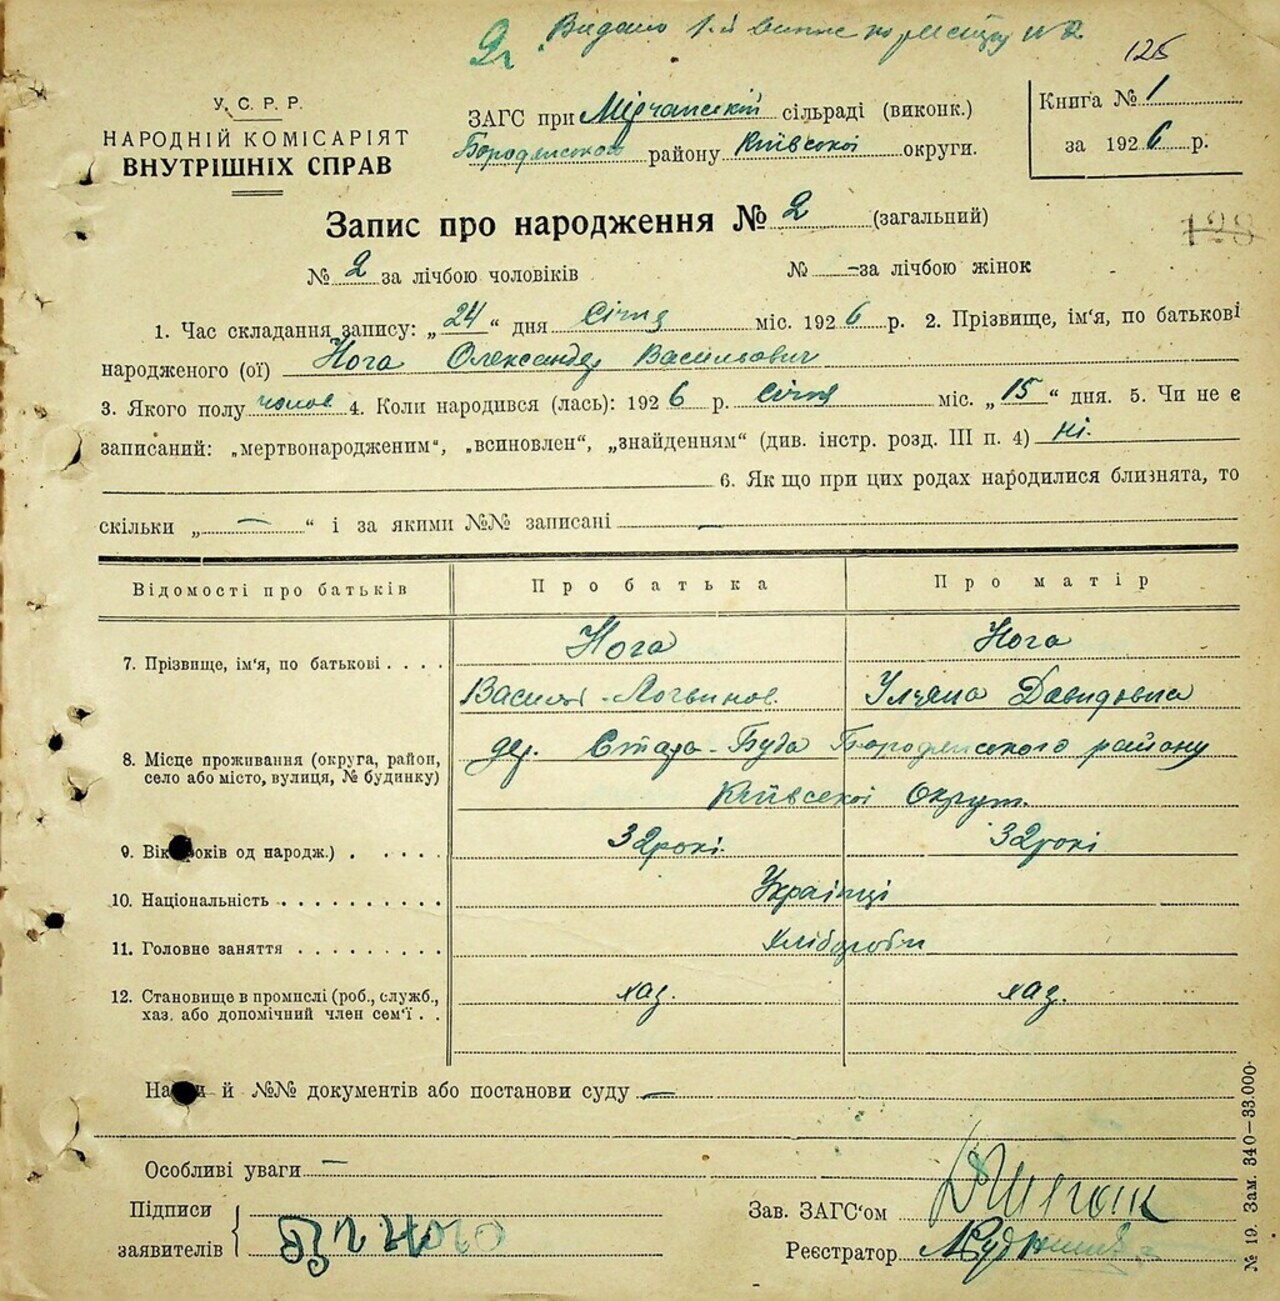 Видано 1-й
125
У. С. Р. Р.
НАРОДНІЙ КОМІСАРІЯТ
ВНУТРІШНІХ СПРАВ
ЗАГС при Мірчанській сільраді (виконк.)
Бородянського району Київської округи.
Книга № 1
за 1926 р.
Запис про народження № 2 (загальний)
128
№ 2 за лічбою чоловіків № – за лічбою жінок
1. Час складання запису: „24“ дня Січня міс. 1926 р. 2. Прізвище, ім'я, по батькові
народженого (ої) Нога Олександр Васильович
3. Якого полу чолов 4. Коли народився (лась): 1926 р. Січня міс. „15“ дня. 5. Чи не є
записаний: „мертвонародженим“, „всиновлен“, „знайденням“ (див. інстр. розд. III п. 4) ні.
6. Як що при цих родах народилися близнята, то
скільки „—“ і за якими №№ записані —
Відомості про батьків Про батька Про матір
7. Прізвище, ім'я, по батькові . . . . Нога Нога
Василь Логвинов. Уляна Давидовна
8. Місце проживання (округа, район, дер. Стара-Буда Бородянського району
село або місто, вулиця, № будинку) Київської Округи.
9. Вік років од народж.) . . . . . 32 рокі. 32 рокі
10. Національність . . . . . . . . . . Українці
11. Головне заняття . . . . . . . . . Хлібороби
12. Становище в промислі (роб., служб., хаз. хаз.
хаз. або допомічний член сем'ї . .
й №№ документів або постанови суду —
Особливі уваги —
Підписи
заявителів
Зав. ЗАГС'ом
Реєстратор
№ 19. Зам. 340—33.000.